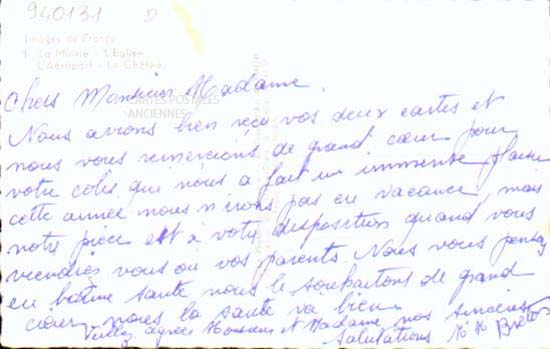 940131 D
Images de France
1. La Mairie - L'Eglise
L'Aéroport - Le Château
CARTES POSTALES
ANCIENNES
Chers Monsieur Madame.
Nous avions bien reçu vos deux cartes et
nous vous remercions de grand cœur pour
votre colis qui nous a fait un immense plaisir
cette année nous n'irons pas en vacance mais
notre pièce est à votre disposition quand vous
viendrez vous ou vos parents. Nous vous pensez
en bonne santé nous le souhaitons de grand
cœur nous la santé va bien
Veuillez agréer Monsieur et Madame nos sincères
salutations